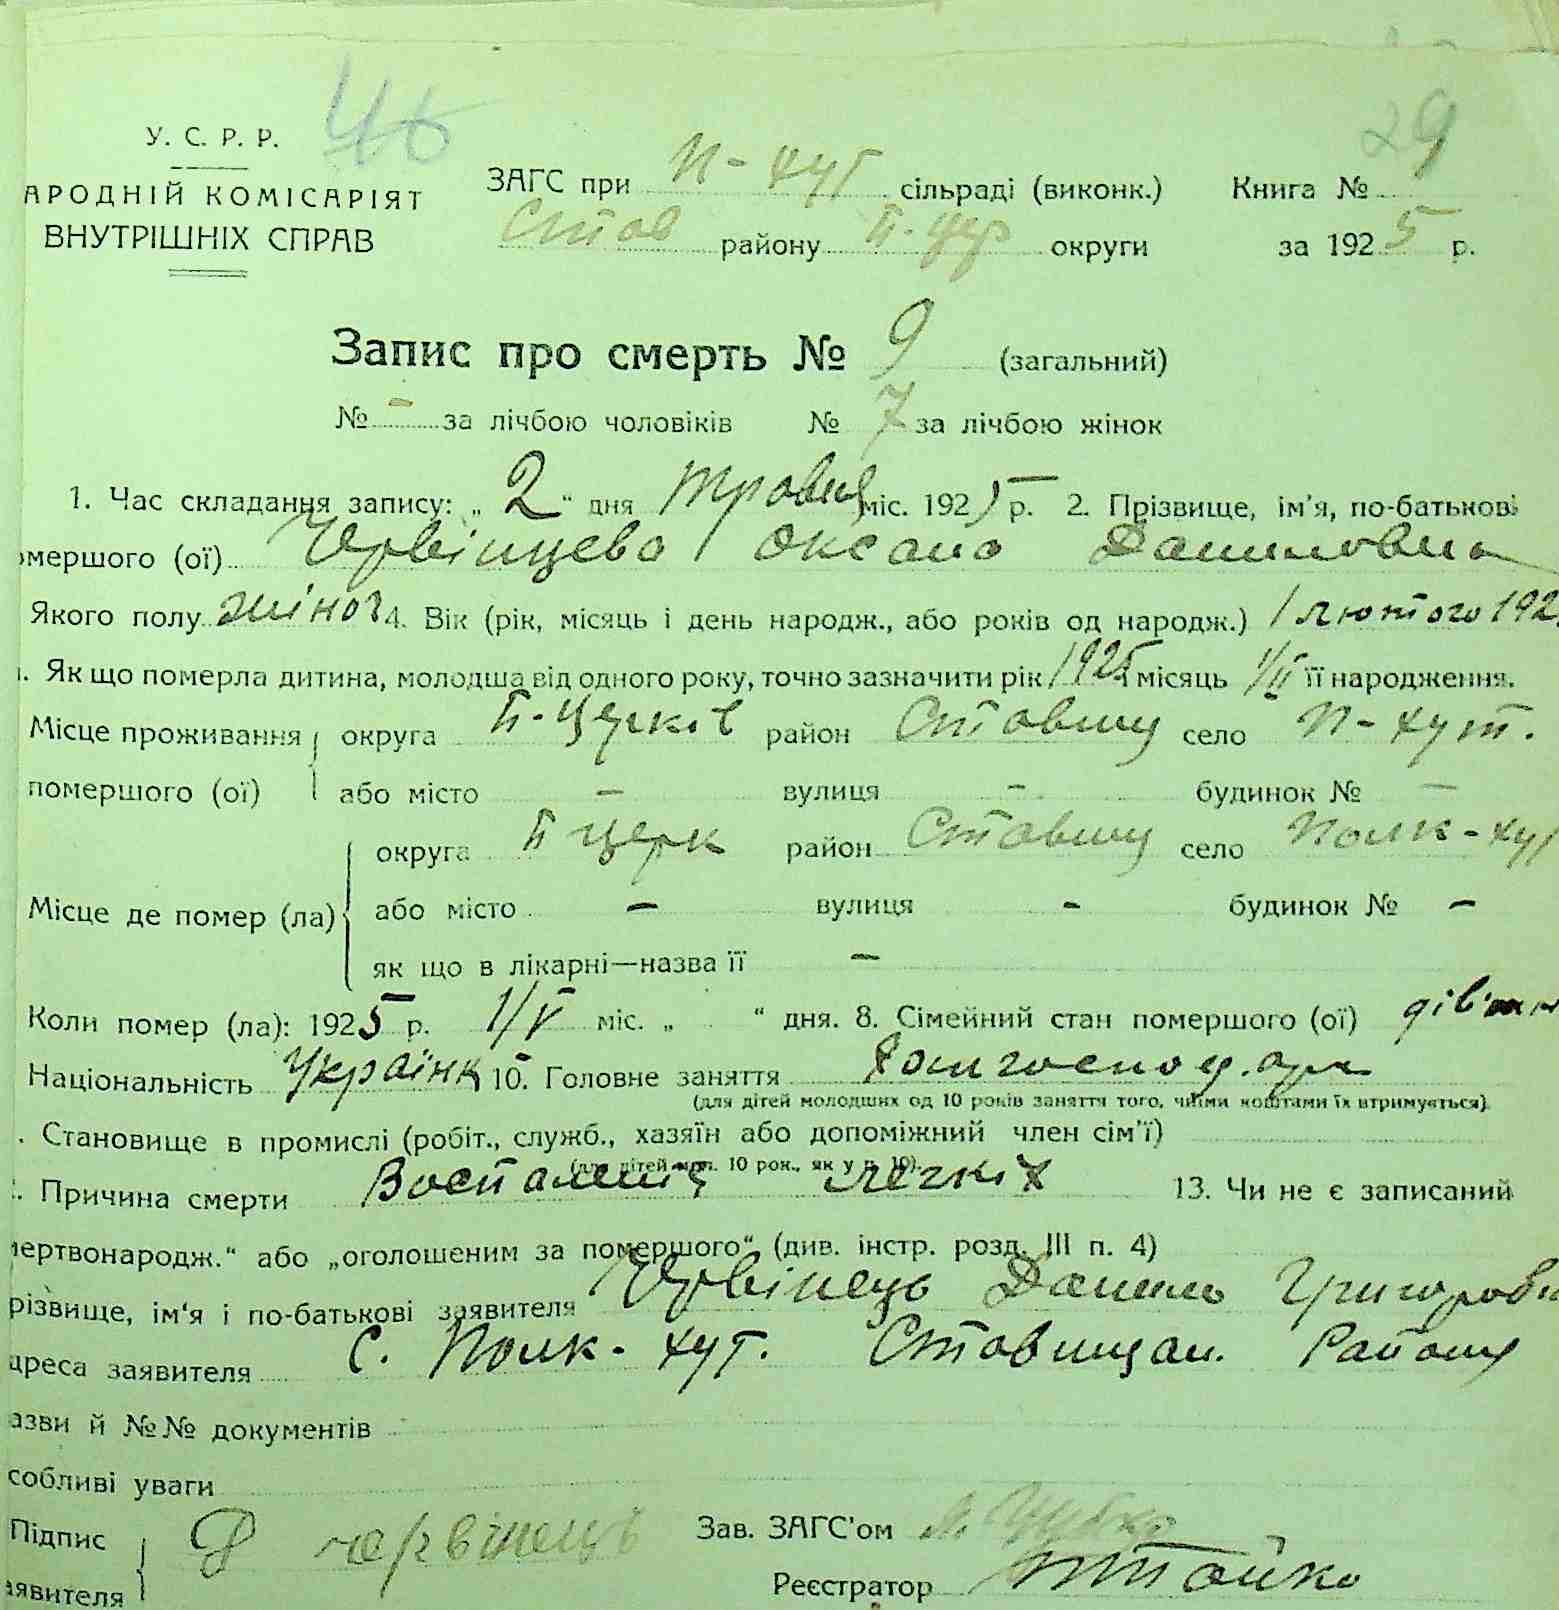 46
29
У. С. Р. Р.
АРОДНІЙ КОМІСАРІЯТ
ВНУТРІШНІХ СПРАВ
ЗАГС при П-хут сільраді (виконк.) Книга №
Став району Б.Цер округи за 1925 р.
Запис про смерть № 9 (загальний)
№ - за лічбою чоловіків № 7 за лічбою жінок
1. Час складання запису: „2“ дня травня міс. 1925 р. 2. Прізвище, ім'я, по-батькові
омершого (ої) Червінцева Оксана Даниловна
Якого полу жіноч 4. Вік (рік, місяць і день народж., або років од народж.) 1 лютого 192
. Як що померла дитина, молодша від одного року, точно зазначити рік 1925 місяць 1/II її народження.
Місце проживання округа Б-Церків район Ставищ село П-хут.
помершого (ої) або місто - вулиця - будинок № -
округа Б церк район Ставищ село Полк-хут
Місце де помер (ла) або місто - вулиця - будинок № -
як що в лікарні—назва її -
Коли помер (ла): 1925 р. 1/V міс. „ “ дня. 8. Сімейний стан помершого (ої)
Національність Українк 10. Головне заняття
(для дітей молодших од 10 років заняття того, чиїми коштами їх втримується).
. Становище в промислі (робіт., служб., хазяїн або допоміжний член сім'ї)
(для дітей мол. 10 рок., як у п. 10).
. Причина смерти Воспаления легких 13. Чи не є записаний
мертвонародж.“ або „оголошеним за помершого“ (див. інстр. розд. III п. 4)
різвище, ім'я і по-батькові заявителя Червінець Данило Григорови
дреса заявителя С. Полк-хут. Ставищан. Району
азви й №№ документів
собливі уваги
Підпис Д червінець Зав. ЗАГС'ом
аявителя Реєстратор